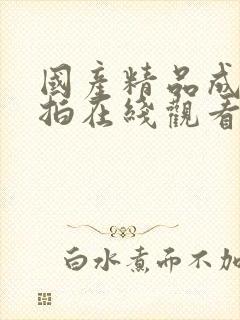 國産精品成
拍在綫觀看
白水煮而不加